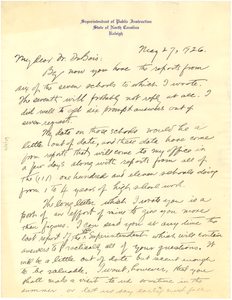 Superintendent of Public Instruction
State of North Carolina
Raleigh
May 27, 1926.
My dear Dr. DuBois:
By now you have the reports from
six of the seven schools to which I wrote.
The seventh will probably not reply at all. I
did well to get six prompt answers out of
seven requests.
The data on those schools would be a
little out of date, and these data have come
from reports that will come to my office in
a few days along with reports from all of
the (111) one hundred and eleven schools doing
from 1 to 4 years of high school work.
The long letter which I wrote you is a
part of an effort of mine to give you more
than figures. I can send you at any time the
last report of the Superintendent which will contain
answers to practically all of your questions. It
will be a little out of date but recent enough
to be valuable. I want, however, that you
shall make a visit to us sometime in the
summer or let us say early